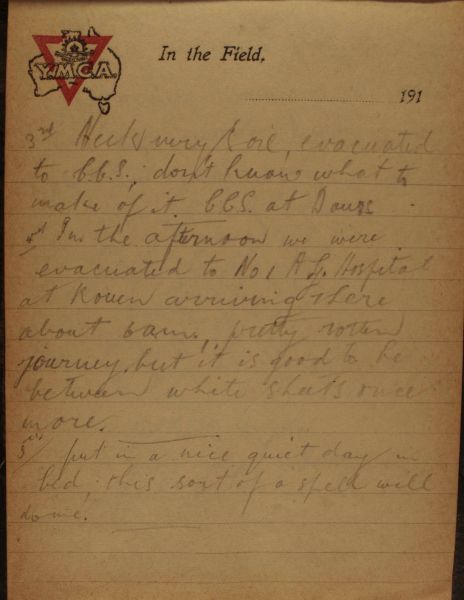 Y.M.C.A.
In the Field,
191
3rd Neck very sore, evacuated
to C.C.S.; don't know what to
make of it. CCS. at Daours.
4th In the afternoon we were
evacuated to No 1 A.G. Hospital
at Rouen arriving there
about 6am., pretty rotten
journey, but it is good to be
between white sheets once
more.
5th/ put in a nice quiet day in
bed; this sort of a spell will
do me.